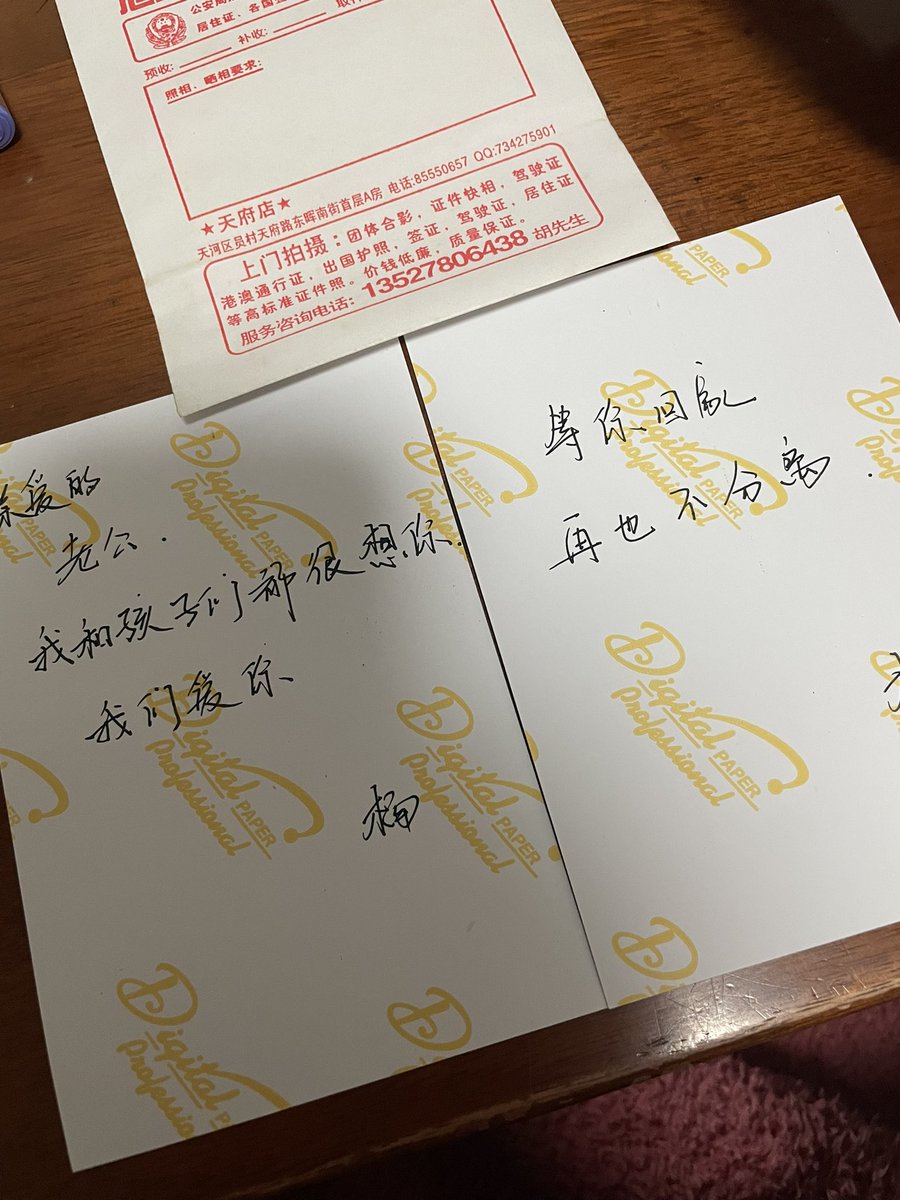 公安局
居住证、各国签
预收:
补收:
取件
照相、晒相要求:
★天府店★
天河区员村天府路东晖南街首层A房 电话:85550657 QQ:734275901
上门拍摄：团体合影，证件快相，驾驶证
港澳通行证，出国护照，签证，驾驶证，居住证
等高标准证件照。价钱低廉，质量保证。
服务咨询电话：13527806438 胡先生
亲爱的
老公.
我和孩子们都很想你.
我们爱你
楠
等你回家
再也不分离.
Digital PAPER
Professional
Digital PAPER
Professional
Digital PAPER
Professional
Digital PAPER
Professional
Digital PAPER
Professional